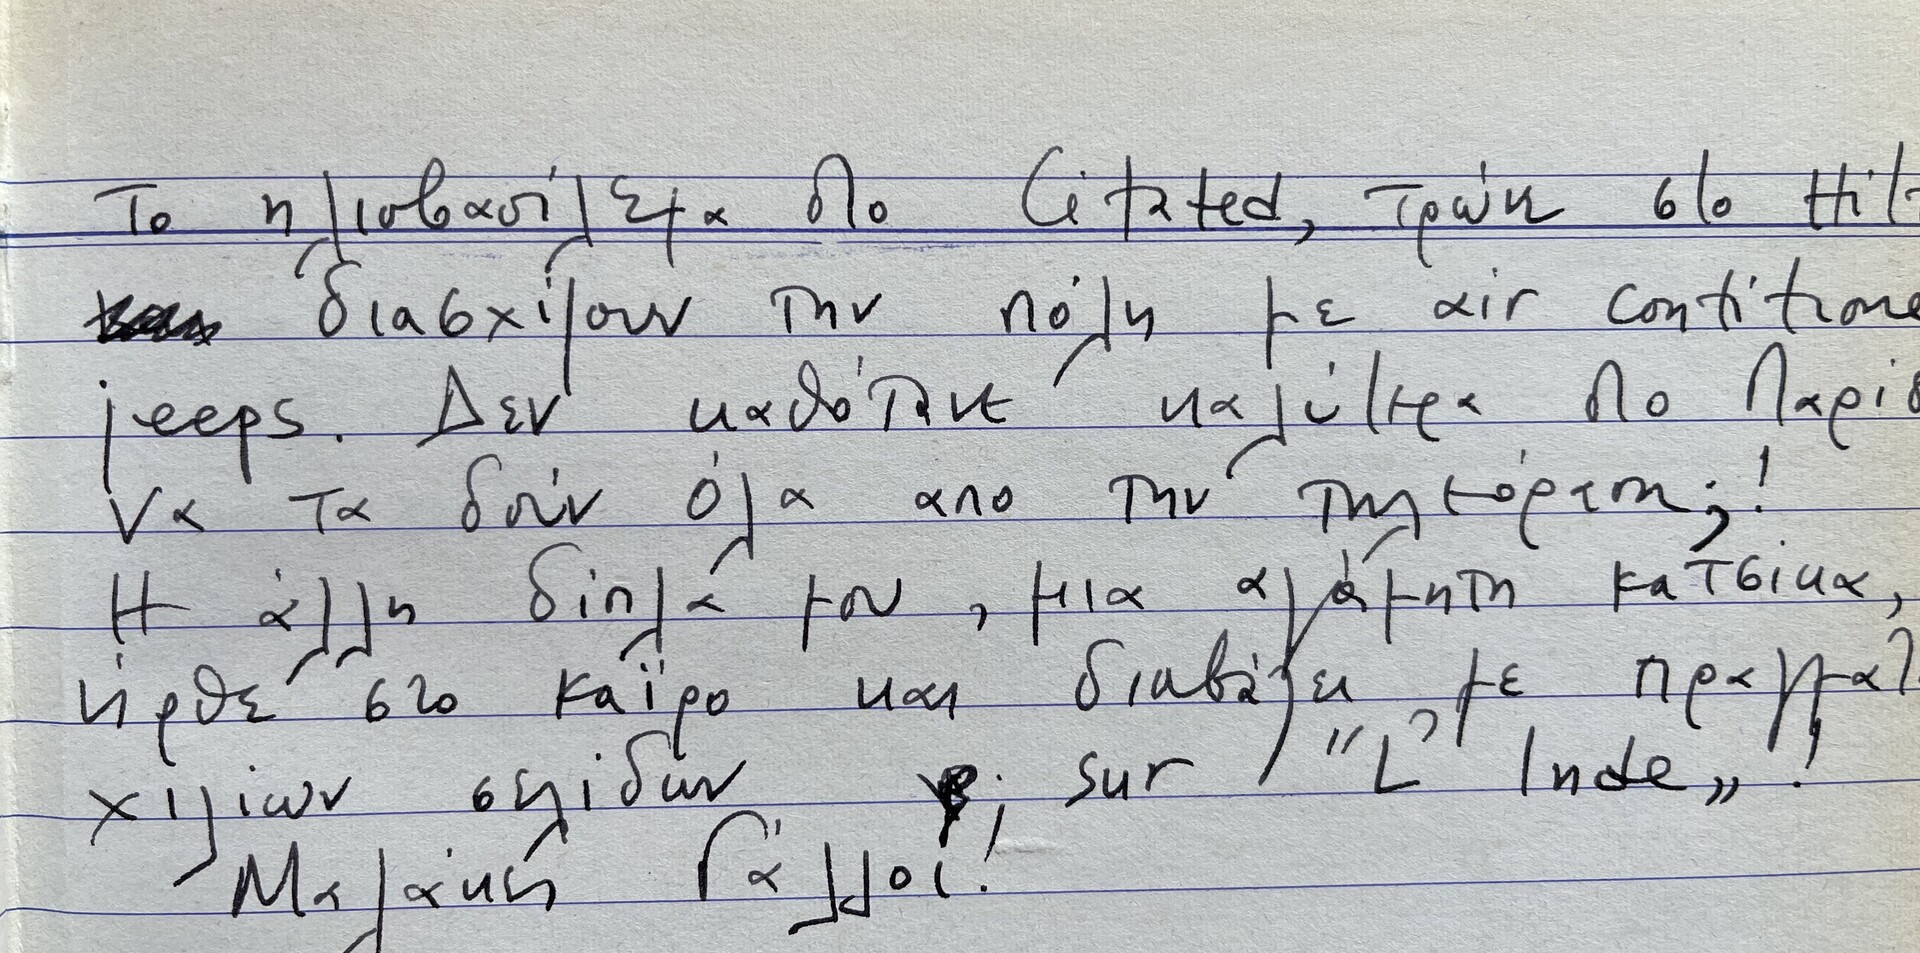 Το ηλιοβασίλεμα στο Citated, τρώνε στο Hilt
διασχίζουν την πόλη με air contitione
jeeps. Δεν καθότανε καλύτερα στο Παρίσ
να τα δούν όλα απο την τηλεόραση;!
Η άλλη δίπλα μου, μια αγάμητη κατσίκα,
ήρθε στο Καΐρο και διαβάζει με πραγματ
χιλίων σελίδων sur "L' Inde„!
Μαλάκες Γάλλοι!